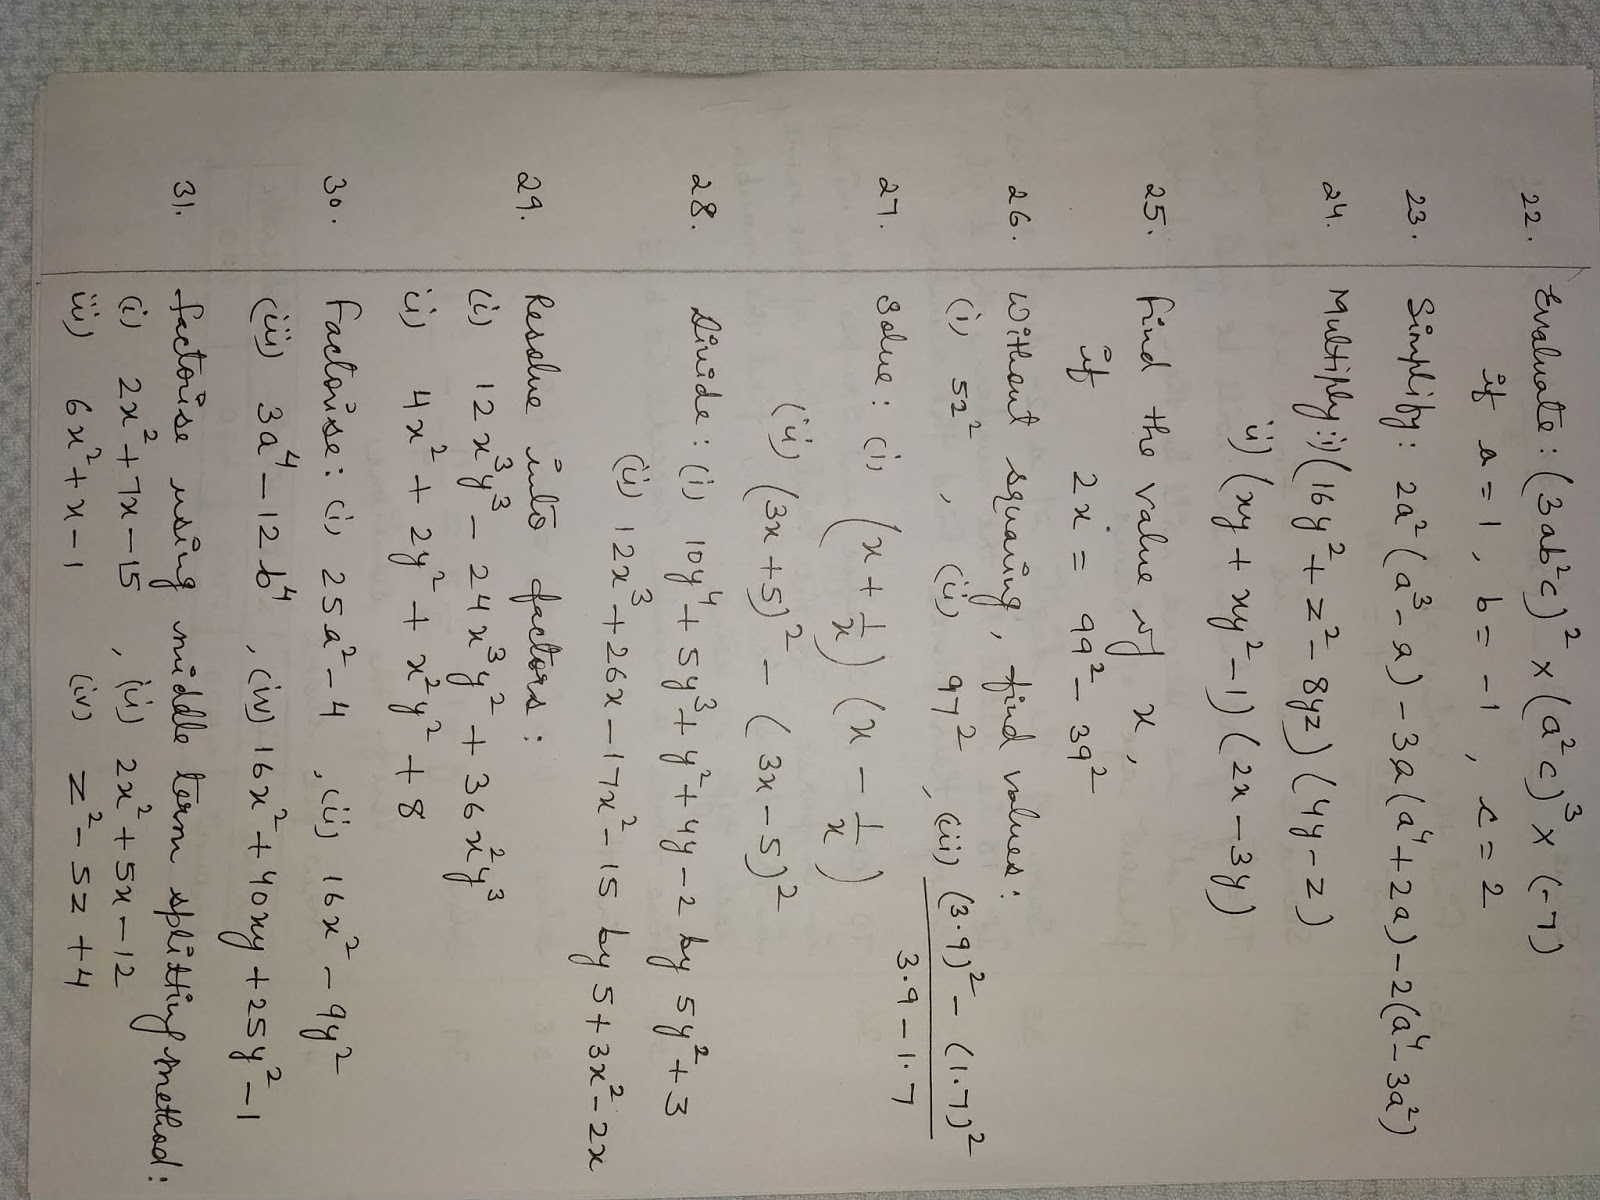 22. Evaluate : (3ab²c)² × (a²c)³ × (-7)
if a = 1 , b = -1 , c = 2
23. Simplify : 2a² (a³ - a) - 3a (a⁴ + 2a) - 2(a⁴ - 3a²)
24. Multiply : i) (16y² + z² - 8yz) (4y - z)
ii) (xy + xy² - 1) (2x - 3y)
25. Find the value of x,
if 2x = 99² - 39²
26. Without squaring, find values :
(i) 52² , (ii) 97² , (iii) (3.9)² - (1.7)² / 3.9 - 1.7
27. Solve : (i) (x + 1/x) (x - 1/x)
(ii) (3x + 5)² - (3x - 5)²
28. Divide : (i) 10y⁴ + 5y³ + y² + 4y - 2 by 5y² + 3
(ii) 12x³ + 26x - 17x² - 15 by 5 + 3x² - 2x
29. Resolve into factors :
(i) 12x³y³ - 24x³y² + 36x²y³
ii) 4x² + 2y² + x²y² + 8
30. Factorise : (i) 25a² - 4 , (ii) 16x² - 9y²
(iii) 3a⁴ - 12b⁴ , (iv) 16x² + 40xy + 25y² - 1
31. Factorise using middle term splitting method :
(i) 2x² + 7x - 15 , (ii) 2x² + 5x - 12
iii) 6x² + x - 1 (iv) z² - 5z + 4